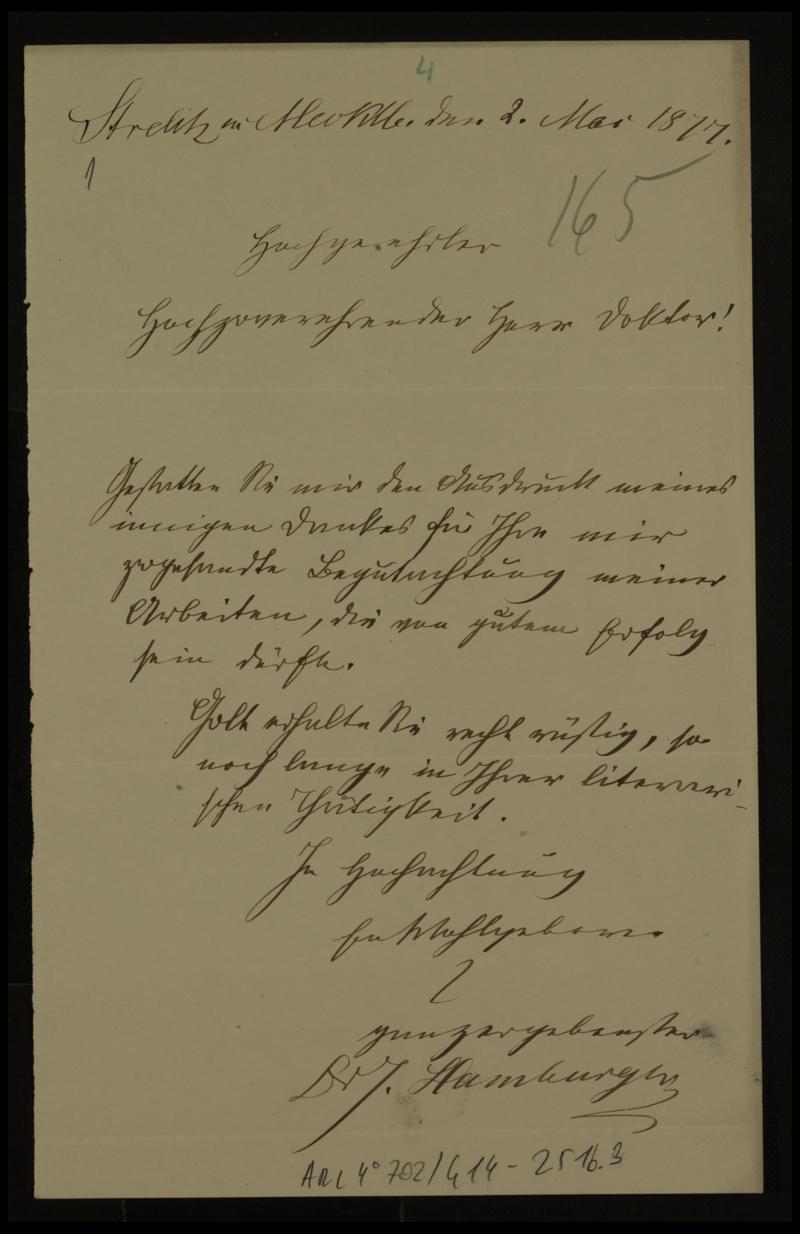 4
Strelitz in Mecklb. den 2. Mai 1877.
1
165
Hochgeehrter
Hochzuverehrender Herr Doktor!
Gestatten Sie mir den Ausdruck meines
innigen Dankes für Ihre mir
zugesandte Begutachtung meiner
Arbeiten, die von gutem Erfolg
sein dürfte.
Gott erhalte Sie recht rüstig, so
noch lange in Ihrer literari-
schen Thätigkeit.
In Hochachtung
Ew Wohlgeboren
ganz ergebenster
Dr J. Hamburger
ARC 4° 702/414-2516.3